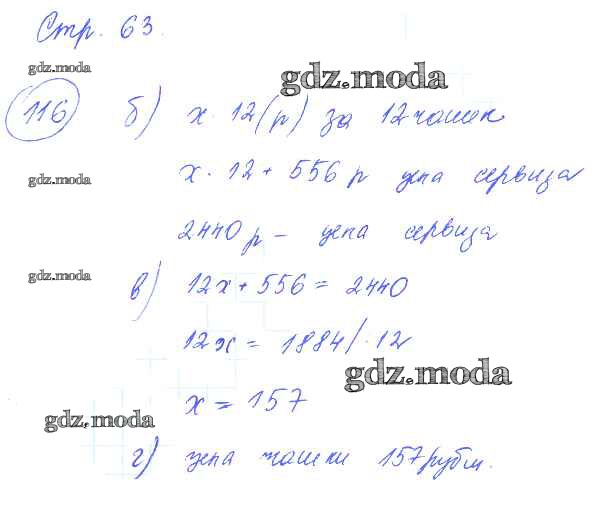 Стр. 63.
gdz.moda
gdz.moda
116 б) х · 12 (р) за 12 чашек
gdz.moda
х · 12 + 556 р цена сервиза
2440 р – цена сервиза
gdz.moda
в) 12х + 556 = 2440
12х = 1884 / · 12
gdz.moda
х = 157
gdz.moda
г) цена чашки 157 рубл.